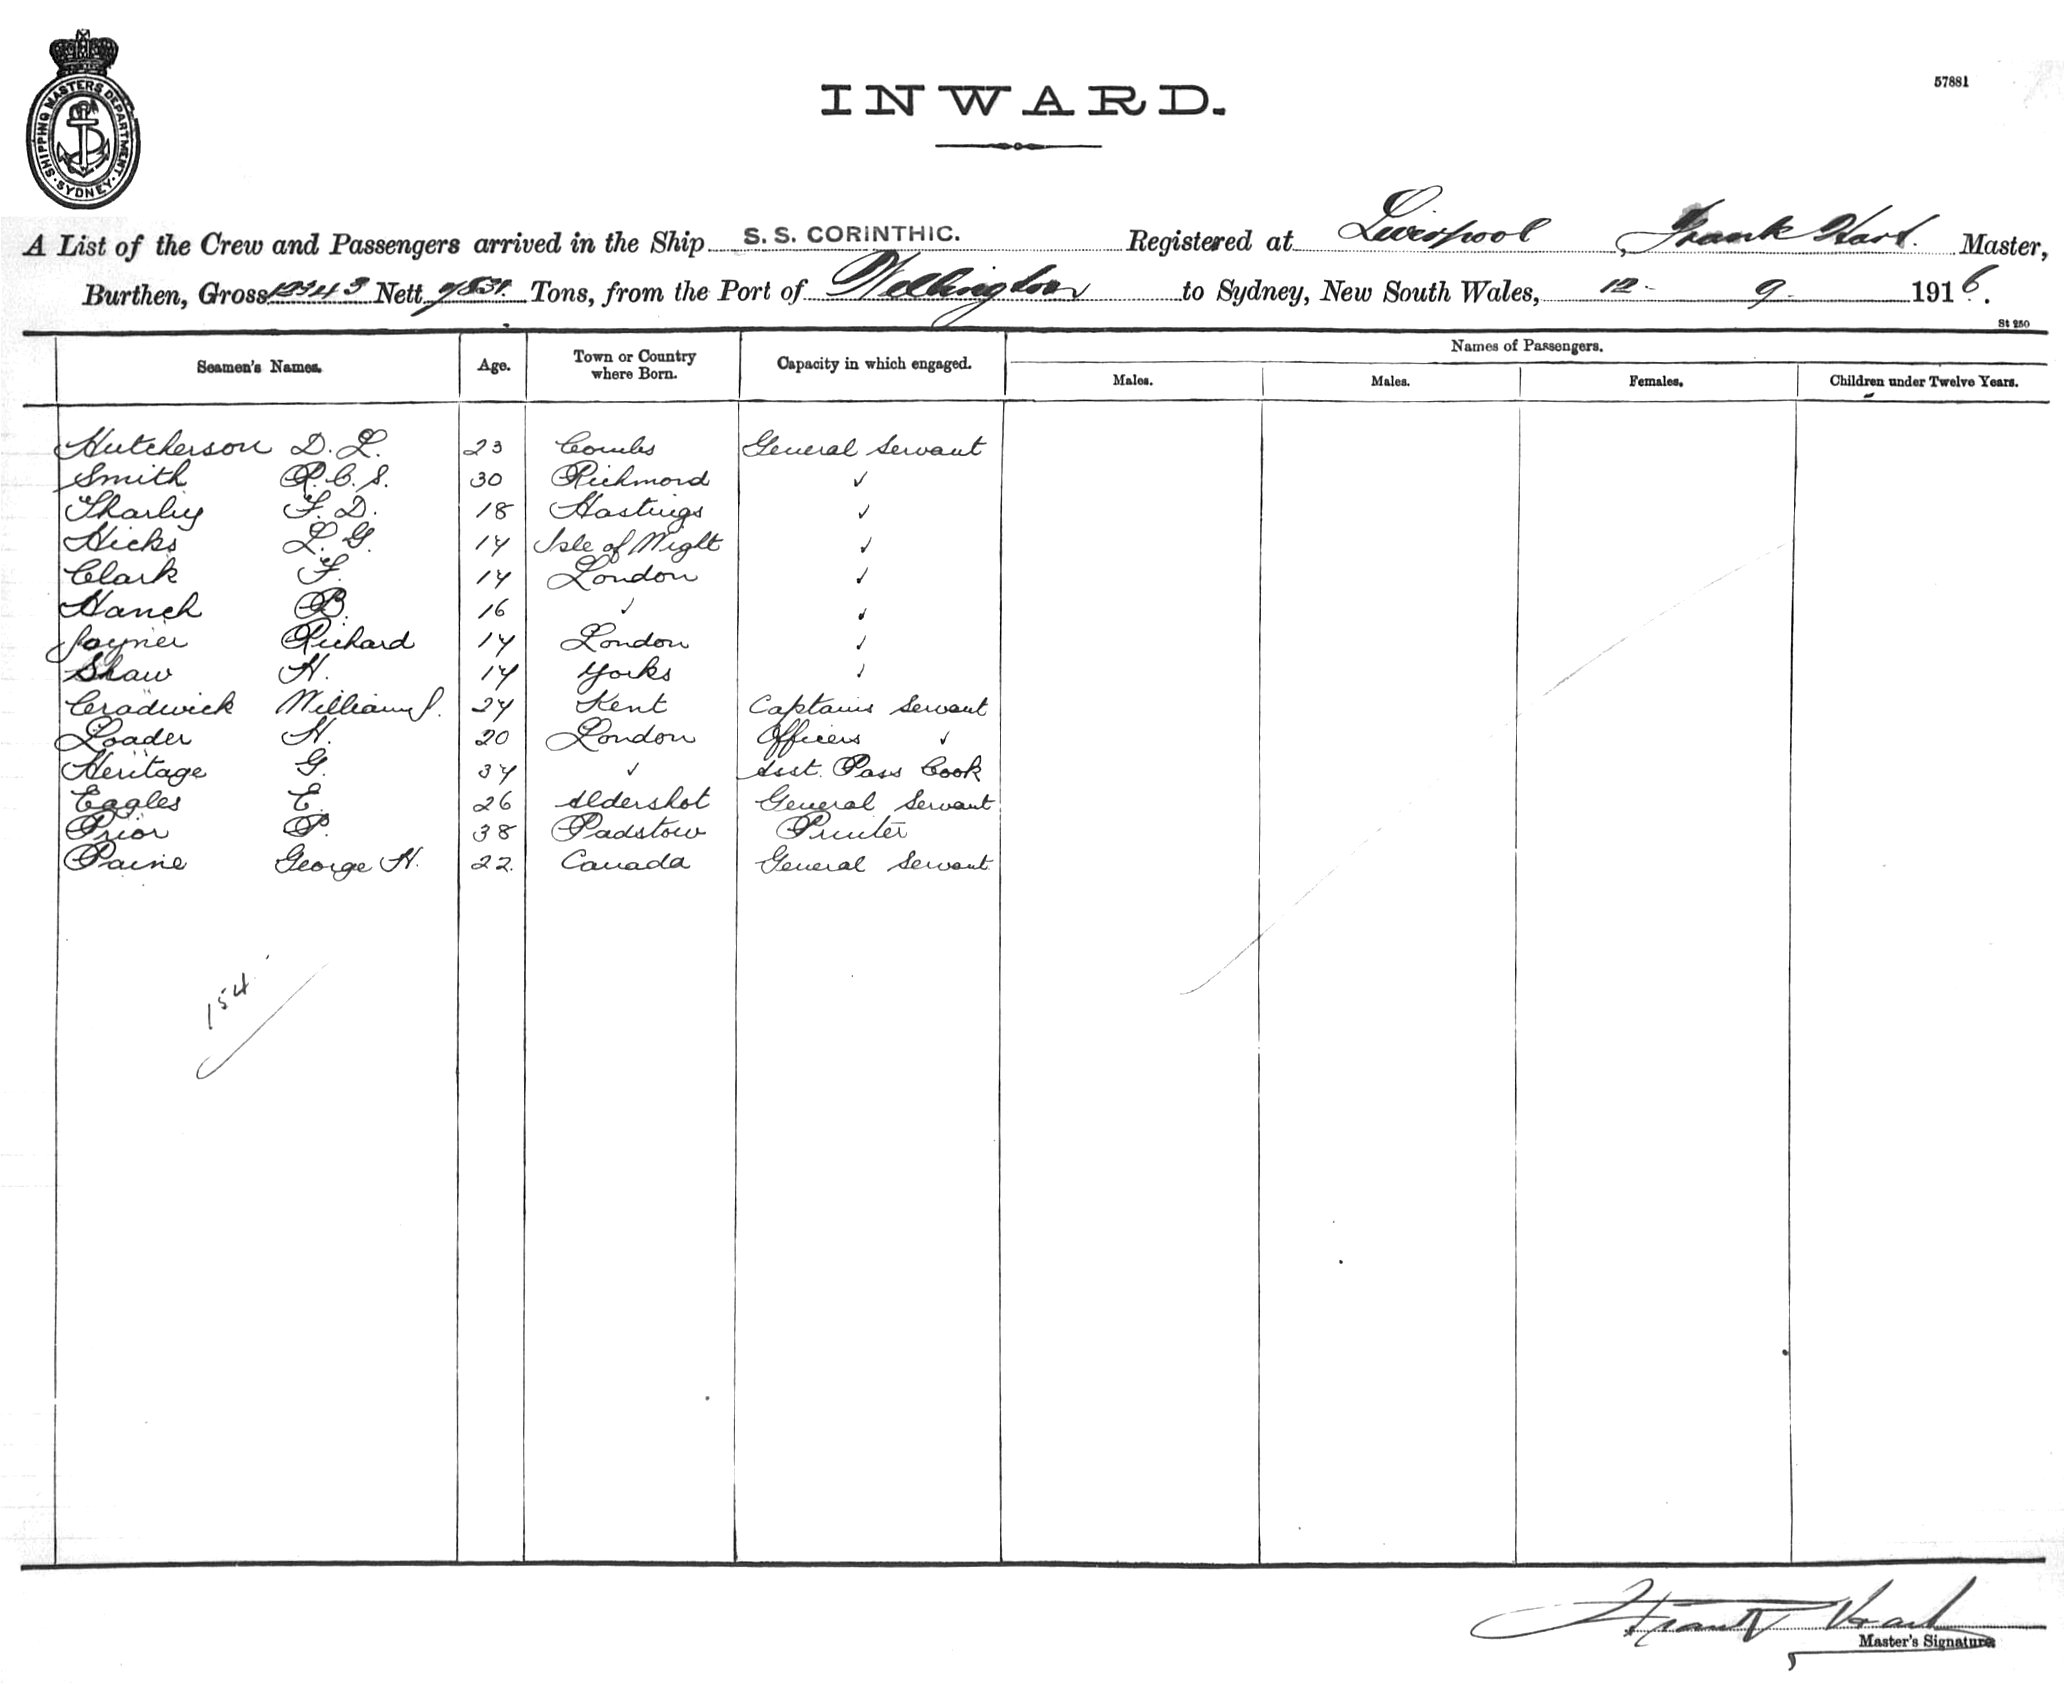 SHIPPING MASTERS DEPARTMENT. SYDNEY.
57881
INWARD.
A List of the Crew and Passengers arrived in the Ship S. S. CORINTHIC. Registered at Liverpool, Frank Hart. Master,
Burthen, Gross 12343 Nett Tons, from the Port of Wellington to Sydney, New South Wales, 12 - 9 - 1916.
St 250
Seamen's Names. Age. Town or Country where Born. Capacity in which engaged. Names of Passengers.
Males. Males. Females. Children under Twelve Years.
Hutcherson D. L. 23 Combs General Servant
Smith P. C. S. 30 Richmond ✓
Tharby F. D. 18 Hastings ✓
Hicks L. G. 17 Isle of Wight ✓
Clark F. 17 London ✓
Hanch B. 16 ✓ ✓
Joyner Richard 17 London ✓
Shaw H. 17 Yorks ✓
Cradwick William J. 27 Kent Captains Servant
Loader H. 20 London Officers ✓
Heritage G. 37 ✓ Asst. Pass Cook
Eagles E. 26 Aldershot General Servant
Prior P. 38 Padstow Printer
Paine George H. 22. Canada General Servant
154
Frank Hart
Master's Signature